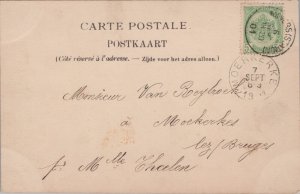 CARTE POSTALE
POSTKAART
(Côté réservé à l'adresse. — Zijde voor het adres alleen.)
MOERKERKE
7
SEPT
Monsieur Van
à
Moerkerke
lez Bruges
p. Mlle